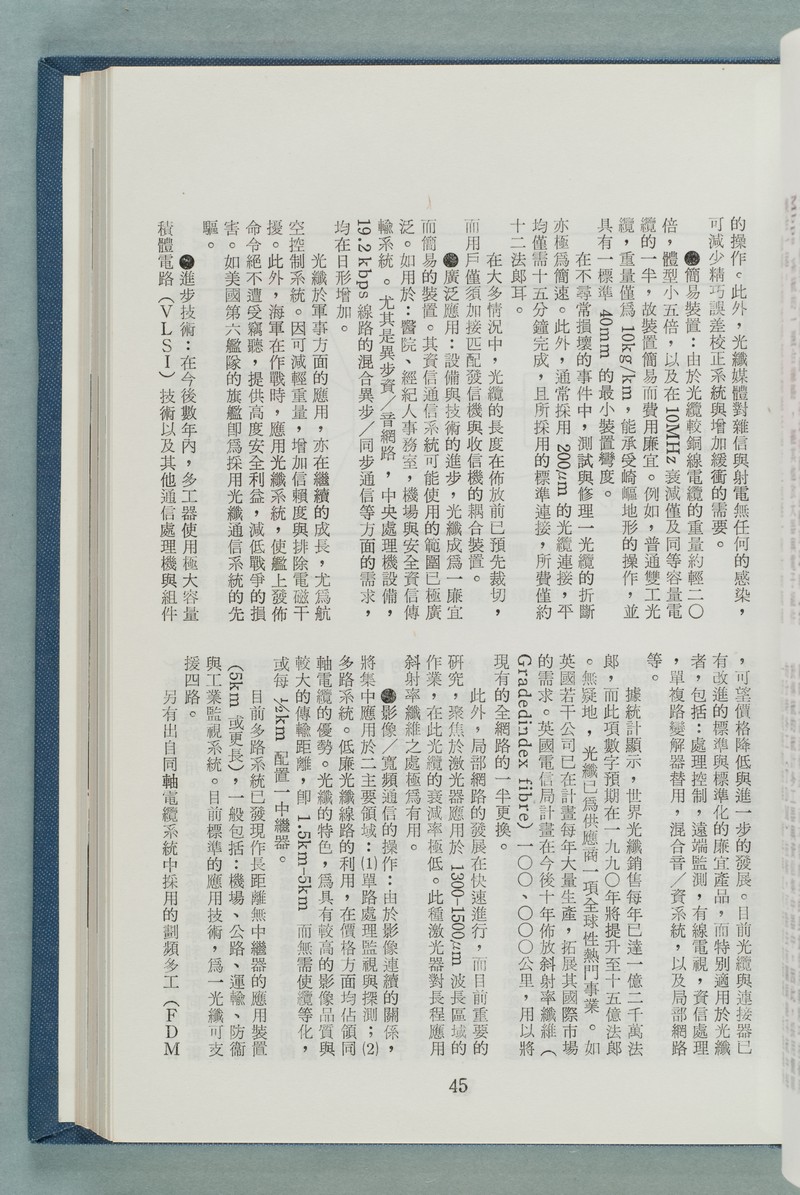 的操作。此外，光纖媒體對雜信與射電無任何的感染，
可減少精巧誤差校正系統與增加緩衝的需要。
●簡易裝置：由於光纜較銅線電纜的重量約輕二〇
倍，體型小五倍，以及在 10MHz 衰減僅及同等容量電
纜的一半，故裝置簡易而費用廉宜。例如，普通雙工光
纜，重量僅爲 10kg/km，能承受崎嶇地形的操作，並
具有一標準 40mm 的最小裝置彎度。
在不尋常損壞的事件中，測試與修理一光纜的折斷
亦極爲簡速。此外，通常採用 200μm 的光纜連接，平
均僅需十五分鐘完成，且所採用的標準連接，所費僅約
十二法郎耳。
在大多情況中，光纜的長度在佈放前已預先裁切，
而用戶僅須加接匹配發信機與收信機的耦合裝置。
●廣泛應用：設備與技術的進步，光纖成爲一廉宜
而簡易的裝置。其資信通信系統可能使用的範圍已極廣
泛。如用於：醫院、經紀人事務室，機場與安全資信傳
輸系統。尤其是異步資／音網路，中央處理機設備，
19.2 kbps 線路的混合異步／同步通信等方面的需求，
均在日形增加。
光纖於軍事方面的應用，亦在繼續的成長，尤爲航
空控制系統。因可減輕重量，增加信賴度與排除電磁干
擾。此外，海軍在作戰時，應用光纖系統，使艦上發佈
命令絕不遭受竊聽，提供高度安全利益，減低戰爭的損
害。如美國第六艦隊的旗艦卽爲採用光纖通信系統的先
驅。
●進步技術：在今後數年內，多工器使用極大容量
積體電路（VLSI）技術以及其他通信處理機與組件
，可望價格降低與進一步的發展。目前光纜與連接器已
有改進的標準與標準化的廉宜產品，而特別適用於光纖
者，包括：處理控制，遠端監測，有線電視，資信處理
，單複路變解器替用，混合音／資系統，以及局部網路
等。
據統計顯示，世界光纖銷售每年已達一億二千萬法
郎，而此項數字預期在一九九〇年將提升至十五億法郎
。無疑地，光纖已爲供應商一項全球性熱門事業。如
英國若干公司已在計畫每年大量生產，拓展其國際市場
的需求。英國電信局計畫在今後十年佈放斜射率纖維（
Gradedindex fibre）一〇〇、〇〇〇公里，用以將
現有的全網路的一半更換。
此外，局部網路的發展在快速進行，而目前重要的
研究，聚焦於激光器應用於 1300-1500μm 波長區域的
作業，在此光纜的衰減率極低。此種激光器對長程應用
斜射率纖維之處極爲有用。
●影像／寬頻通信的操作：由於影像連續的關係，
將集中應用於二主要領域：(1)單路處理監視與探測；(2)
多路系統。低廉光纖線路的利用，在價格方面均佔領同
軸電纜的優勢。光纖的特色，爲具有較高的影像品質與
較大的傳輸距離，卽 1.5km-5km 而無需使纜等化，
或每 ½km 配置一中繼器。
目前多路系統已發現作長距離無中繼器的應用裝置
（5km 或更長），一般包括：機場、公路、運輸、防衞
與工業監視系統。目前標準的應用技術，爲一光纖可支
援四路。
另有出自同軸電纜系統中採用的劃頻多工（FDM
45